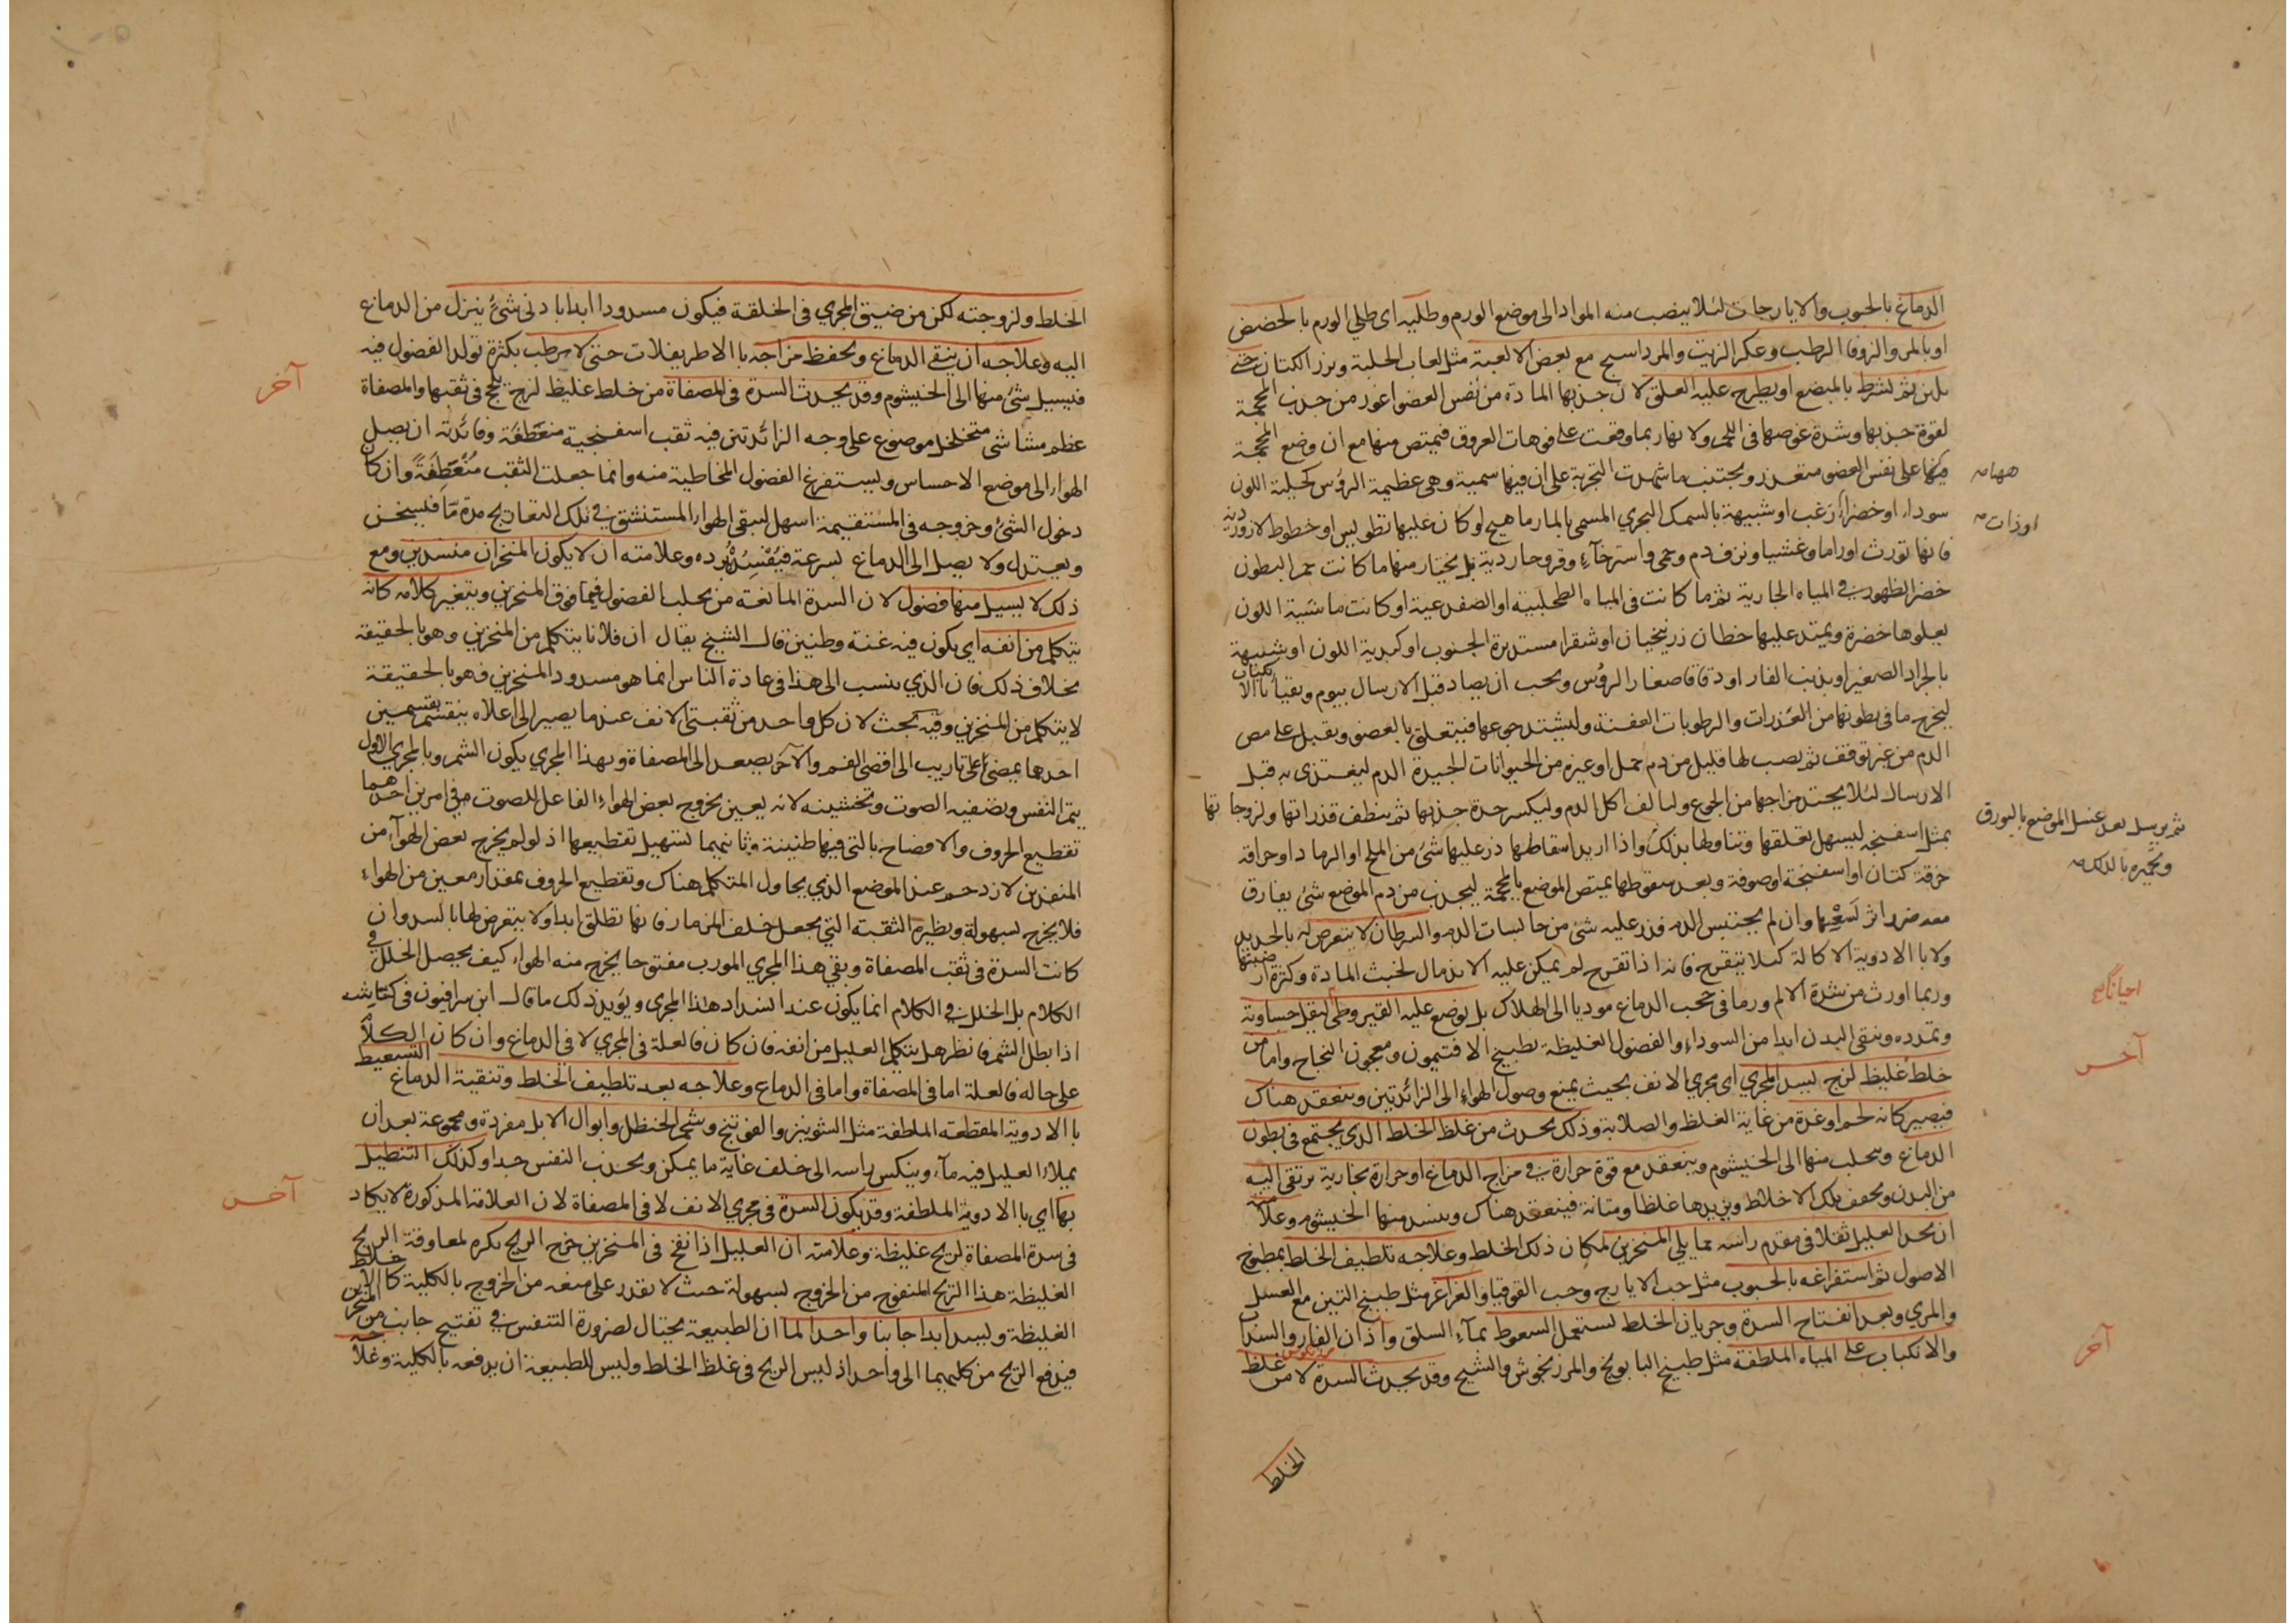 الدماغ بالحبوب والايارجات لئلا ينصب منه المواد الى موضع الورم وطليه اى طلي الورم بالحضض
او بالمر والزوفا الرطب وعكر الزيت والمرداسبج مع بعض الالعبة مثل لعاب الحلبة وبزر الكتان حتى
يلين ثم يشرط بالمبضع او يطرح عليه العلق لان جذبها المادة من نفس العضو اغور من جذب المحجمة
لقوة جذبها وشدة غوصها فى اللحم ولانها ربما وقعت على فوهات العروق فيمتص منها مع ان وضع المحجمة
ههنا على نفس العضو متعذر ويجتنب ما شهدت التجربة على ان فيها سمية وهى عظيمة الرؤس كحلية اللون
ههنا
سوداء او خضراء زغب او شبيهة بالسمك البحري المسمى بالمارماهيج او كان عليها تطويس او خطوط لازوردية
او ذات
فانها تورث اوراما وغشيا ونزف دم وحمى واسترخآء وقروحا ردية بل يختار منها ما كانت حمر البطون
خضر الظهور في المياه الجارية ثم ما كانت فى المياه الطحلبية او الضفدعية او كانت ماشية اللون
يعلوها خضرة ويمتد عليها خطان زرنيخيان او شقرا مستديرة الجنوب او كبدية اللون او شبيهة
بالجراد الصغير او بذنب الفار او دقاقا صغار الرؤس ويجب ان يصاد قبل الارسال بيوم ويقيأ بالاكباب
ليخرج ما فى بطونها من القذرات والرطوبات العفنة وليشتد جوعها فيتعلق بالعضو ويقبل على مص
الدم من غير توقف ثم يصب لها قليل من دم حمل او غيره من الحيوانات الجيدة الدم ليغتذى به قبل
الارسال لئلا يحتد مزاجها من الجوع ولتالف اكل الدم وليكسر حدة جذبها ثم ينظف قذراتها ولزوجاتها
ثم يرسل بعد غسل الموضع بالبورق
بمثل اسفنجه ليسهل تعلقها وتناولها بذلك واذا اريد اسقاطها ذر عليها شئ من الملح او الرماد او حراقة
وتحميره بالدلك
خرقة كتان او اسفنجة او صوفة وبعد سقوطها يمتص الموضع بالمحجمة ليجذب من دم الموضع شئ يفارق
معه ضرر اثر لسعها وان لم يحتبس الدم فذر عليه شئ من حابسات الدم والسرطان لا يتعرض له بالحديد
ولا بالادوية الاكالة كيلا يتقرح فانه اذا تقرح لم يمكن عليه الاندمال لخبث المادة وكثرة ارضيتها
وربما اورث من شدة الالم ورما فى حجب الدماغ موديا الى الهلاك بل يوضع عليه القيروطى ليقل جساوته
احيانا
وتمدده وينقى البدن ابدا من السوداء والفضول الغليظة بطبيخ الافتيمون ومعجون النجاح واما من
آخر
خلط غليظ لزج يسد المجرى اى مجرى الانف بحيث يمنع وصول الهواء الى الزائدتين وينعقد هناك
فيصير كانه لحم او غدة من غاية الغلظ والصلابة وذلك يحدث من غلظ الخلط الذى يجتمع فى بطون
الدماغ ويتحلب منها الى الخيشوم وينعقد مع قوة حرارة في مزاج الدماغ او حرارة بخارية يرتقى اليه
من البدن ويجفف تلك الاخلاط ويزيدها غلظا ومتانة فينعقد هناك وينسد منها الخيشوم وعلامته
ان يجد العليل ثقلا فى مقدم راسه مما يلي المنخرين لمكان ذلك الخلط وعلاجه تلطيف الخلط بمطبوخ
الاصول ثم استفراغه بالحبوب مثل حب الايارج وحب القوقيا والغراغر مثل طبيخ التين مع العسل
والمري وبعد انفتاح السدة وجريان الخلط يستعمل السعوط بمآء السلق وآذان الفار والسذاب
آخر
والانكباب على المياه الملطفة مثل طبيخ البابونج والمرزنجوش والشيح وقد يحدث السدة لا من غلظ
الخلط
الخلط ولزوجته لكن من ضيق المجري فى الخلقة فيكون مسدودا ابدا بادنى شئ ينزل من الدماغ
اليه وعلاجه ان ينقى الدماغ ويحفظ مزاجه بالاطريفلات حتى لا يرطب بكثرة تولد الفضول فيه
آخر
فيسيل شئ منها الى الخيشوم وقد يحدث السدة فى المصفاة من خلط غليظ لزج يلحج فى ثقبها والمصفاة
عظم مشاشى متخلخل موضوع على وجه الزائدتين فيه ثقب اسفنجية منعطفة وفائدته ان يصل
الهواء الى موضع الاحساس ويستفرغ الفضول المخاطية منه وانما جعلت الثقب منعطفة وان كان
دخول الشئ وخروجه فى المستقيمة اسهل ليبقى الهواء المستنشق في تلك التعاريج مدة ما فيسخن
ويعتدل ولا يصل الى الدماغ بسرعة فيفسد ببرده وعلامته ان لا يكون المنخران منسدين ومع
ذلك لا يسيل منها فضول لان السدة المانعة من تحلب الفضول فيما فوق المنخرين ويتغير كلامه كانه
يتكلم من انفه اي يكون فيه غنة وطنين قال الشيخ يقال ان فلانا يتكلم من المنخرين وهو بالحقيقة
بخلاف ذلك فان الذي ينسب الى هذا فى عادة الناس انما هو مسدود المنخرين فهو بالحقيقة
لا يتكلم من المنخرين وفيه بحث لان كل واحد من ثقبتى الانف عند ما يصير الى اعلاه ينقسم بقسمين
احدهما يمضى على تاريب الى اقصى الفم والآخر يصعد الى المصفاة وبهذا المجرى يكون الشم وبالمجرى الاول
يتم التنفس وتصفيه الصوت وتحسينه لانه يعين بخروج بعض الهواء الفاعل للصوت فى امرين احدهما
تقطيع الحروف والافصاح بالتى فيها طنينة وثانيهما تسهيل تقطيعها اذ لو لم يخرج بعض الهوآء من
المنفذين لازدحم عند الموضع الذي يحاول المتكلم هناك وتقطيع الحروف بمقدار معين من الهواء
فلا يخرج بسهولة ونظيره الثقبة التي يجعل خلف المزمار فانها تطلق ابدا ولا يتعرض لها بالسد وان
كانت السدة فى ثقب المصفاة وبقي هذا المجرى المورب مفتوحا يخرج منه الهواء كيف يحصل الخلل في
الكلام بل الخلل في الكلام انما يكون عند انسداد هذا المجرى ويؤيد ذلك ما قال ابن سرافيون فى كناشه
اذا بطل الشم فانظر هل يتكلم العليل من انفه فان كان فالعلة فى المجري لا فى الدماغ وان كان الكلام
على حاله فالعلة اما فى المصفاة واما فى الدماغ وعلاجه بعد تلطيف الخلط وتنقية الدماغ التسعيط
بالادوية المقطعة الملطفة مثل الشونيز والفوتنج وشحم الحنظل وابوال الابل مفردة ومجموعة بعد ان
يملاء العليل فيه مآء وينكس راسه الى خلف غاية ما يمكن ويجذب النفس جدا وكذلك التنطيل
بها اي بالادوية الملطفة وقد يكون السدة فى مجرى الانف لا فى المصفاة لان العلامة المذكورة لا يكاد
آخر
فى سدة المصفاة لريح غليظة وعلامته ان العليل اذا نفخ فى المنخرين خرج الريح بكره لمعاوقة الريح
الغليظة هذا الريح المنفوخ من الخروج بسهولة حيث لا يقدر على منعه من الخروج بالكلية كالاخلاط
الغليظة ويسد ابدا جانبا واحدا لما ان الطبيعة يحتال لضرورة التنفس في تفتيح جانب من المنخرين
فيدفع الريح من كليهما الى واحد اذ ليس الريح فى غلظ الخلط وليس للطبيعة ان يدفعه بالكلية وعلاجه